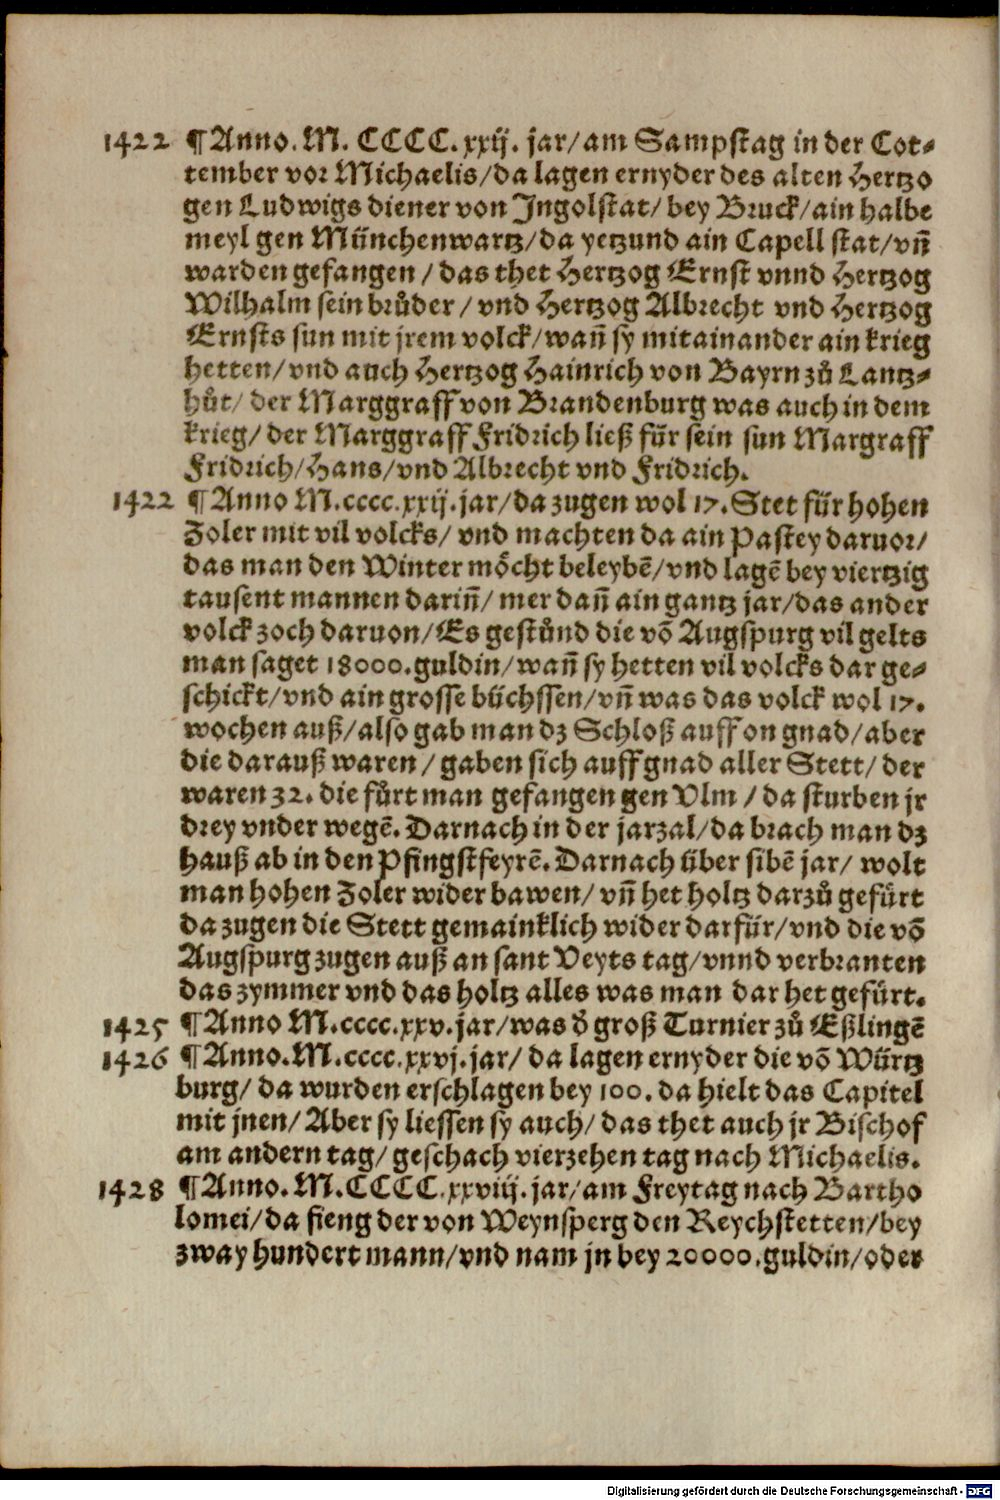 1422 ¶ Anno. M. CCCC. xxij. jar/ am Sampstag in der Cot⸗
tember vor Michaelis/ da lagen ernyder des alten Hertzo
gen Ludwigs diener von Jngolstat/ bey Bruck/ ain halbe
meyl gen Münchenwartz/ da yetzund ain Capell stat/ vñ
warden gefangen / das thet Hertzog Ernst vnnd Hertzog
Wilhalm sein brůder / vnd Hertzog Albrecht vnd Hertzog
Ernsts sun mit jrem volck/ wañ sy mitainander ain krieg
hetten/ vnd auch Hertzog Hainrich von Bayrn zů Lantz⸗
hůt/ der Marggraff von Brandenburg was auch in dem
krieg/ der Marggraff Fridrich ließ für sein sun Margraff
Fridrich/ Hans/ vnd Albrecht vnd Fridrich.
1422 ¶ Anno M.cccc.xxij.jar/ da zugen wol 17. Stet für hohen
Zoler mit vil volcks/ vnd machten da ain Pastey daruor/
das man den Winter möcht beleybẽ/ vnd lagẽ bey viertzig
tausent mannen dariñ/ mer dañ ain gantz jar/ das ander
volck zoch daruon/ Es gestůnd die võ Augspurg vil gelts
man saget 18000. guldin/ wañ sy hetten vil volcks dar ge⸗
schickt/ vnd ain grosse büchssen/ vñ was das volck wol 17.
wochen auß/ also gab man dz Schloß auff on gnad/ aber
die darauß waren / gaben sich auff gnad aller Stett/ der
waren 32. die fůrt man gefangen gen Vlm / da sturben jr
drey vnder wegẽ. Darnach in der jarzal/ da brach man dz
hauß ab in den Pfingstfeyrẽ. Darnach über sibẽ jar/ wolt
man hohen Zoler wider bawen/ vñ het holtz darzů gefürt
da zugen die Stett gemainklich wider darfür/ vnd die võ
Augspurg zugen auß an sant Veyts tag/ vnnd verbranten
das zymmer vnd das holtz alles was man dar het gefürt.
1425 ¶ Anno M.cccc.xxv.jar/ was d̕ groß Turnier zů Eßlingẽ
1426 ¶ Anno. M.cccc.xxvj.jar/ da lagen ernyder die võ Würtz
burg/ da wurden erschlagen bey 100. da hielt das Capitel
mit jnen/ Aber sy liessen sy auch/ das thet auch jr Bischof
am andern tag/ geschach vierzehen tag nach Michaelis.
1428 ¶ Anno. M. CCCC. xxviij. jar/ am Freytag nach Bartho
lomei/ da fieng der von Weynsperg den Reychstetten/ bey
zway hundert mann/ vnd nam jn bey 20000. guldin/ oder
Digitalisierung gefördert durch die Deutsche Forschungsgemeinschaft - DFG